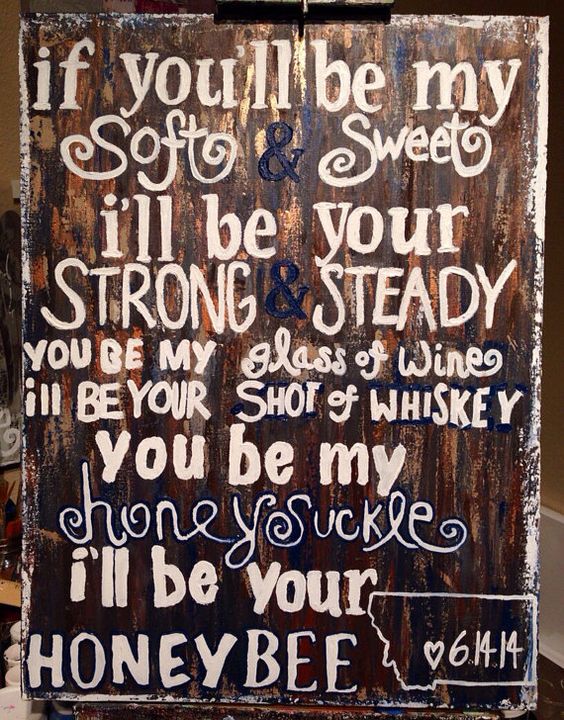 if you'll be my
Soft & Sweet
i'll be your
STRONG & STEADY
YOU BE MY glass of wine
ill BE YOUR SHOT of WHISKEY
you be my
honeysuckle
i'll be your
HONEYBEE
♡6.14.14